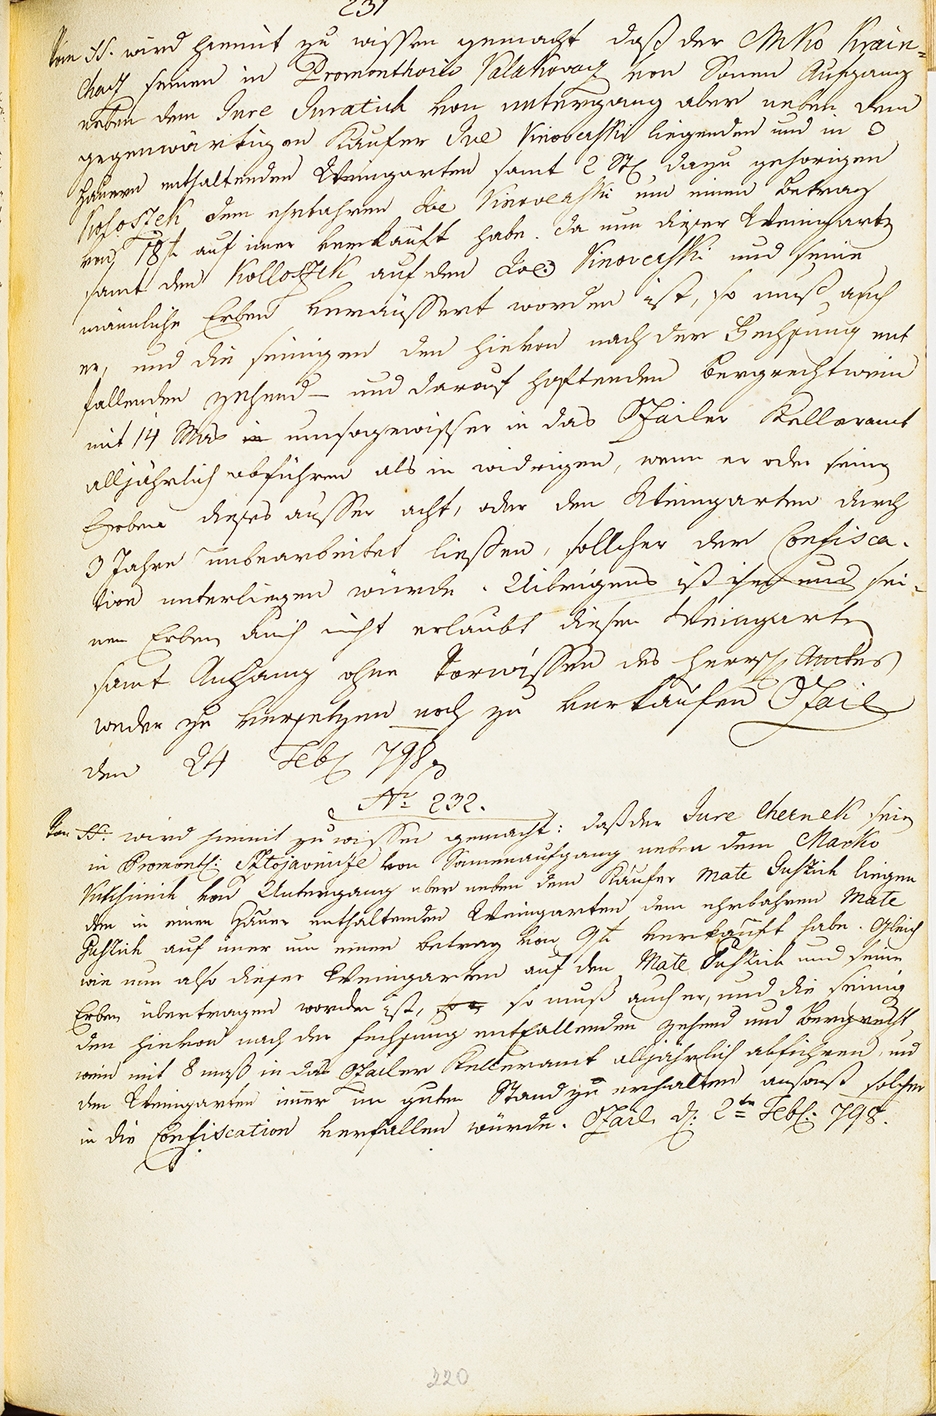 231
Von H: wird hiemit zu wissen gemacht daß der Mko Krain-
chach seinen in Promonthorio Valakovacz von Sonen Aufgang
neben dem Jure Juratich von untergang aber neben dem
gegenwärtigen Kaufer Ive Vinoverski liegenden und in
Hauern enthaltenden Weingarten samt 2 St dazu gehorigen
Kosostek dem ehrbahren Ive Vinoverski um einen Betrag
von 18 f auf imer verkauft habe. Da nun dieser Weingarten
samt den Kollostek auf den Ive Vinoverski und seine
männliche Erben veräussert worden ist, so muß auch
er, und die seinigen den hievon nach der Fechsung ent
fallenden zehend – und darauf haftenden Bergrechtwein
mit 14 Mas umsogewisser in das Ozailer Kelleramt
alljährlich abführen als in widrigen, wenn er oder seine
Erben dieses ausser acht, oder den Weingarten durch
3 Jahre unbearbeitet liessen, sollcher der Confisca-
tion unterliegen würde. Uibrigens ist ihm und sei-
nen Erben auch nicht erlaubt diesen Weingarten
samt Anhang ohne Vorwissen des Herrsch Amtes
weder zu versetzen noch zu verkaufen Ozail
den 24 Feb 798
Nr. 232.
Von H: wird hiemit zu wissen gemacht: daß der Jure Chernek sein
in Promont: Sztojavnicze von Sonnenaufgang neben dem Marko
von Untergang aber neben dem Käufer Mate Guschich liegen
den in einen Hauer enthaltenden Weingarten dem ehrbahren Mate
Guschich auf imer um einen Betrag von 9 f verkauft habe. Gleich
wie nun also dieser Weingarten auf den Mate Guschich und seine
Erben übertragen worden ist, so muß auch er, und die seinig
den hievon nach der Fechsung entfallenden zehend und Bergrecht
wein mit 8 maß in das Ozailer Kelleramt alljährlich abführen und
den Weingarten imer im guten Stand zu erhalten ansonst solcher
in die Confiscation verfallen würde. Ozail d: 2ten Feb: 798.
220